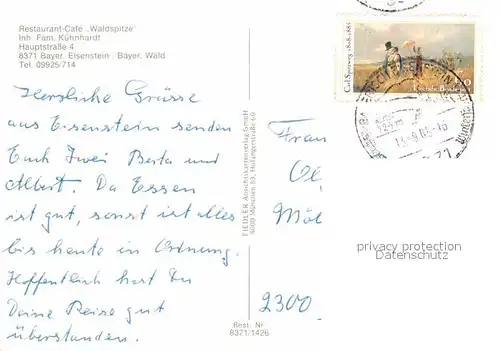 Restaurant-Café „Waldspitze"
Inh. Fam. Kühnhardt
Hauptstraße 4
8371 Bayer. Eisenstein / Bayer. Wald
Tel. 09925/714
Herzliche Grüsse
aus Eisenstein senden
Euch Zwei Berta und
Albert. Da Essen
ist gut, sonst ist alles
bis heute in Ordnung.
Hoffentlich hast Du
Deine Reise gut
überstanden.
FIEDLER Ansichtskartenverlag GmbH
8000 München 83
Best. Nr
8371/1426
Carl Spitzweg 1808-1885
Deutsche Bundespost
Fran
Möl
2300
privacy protection
Datenschutz